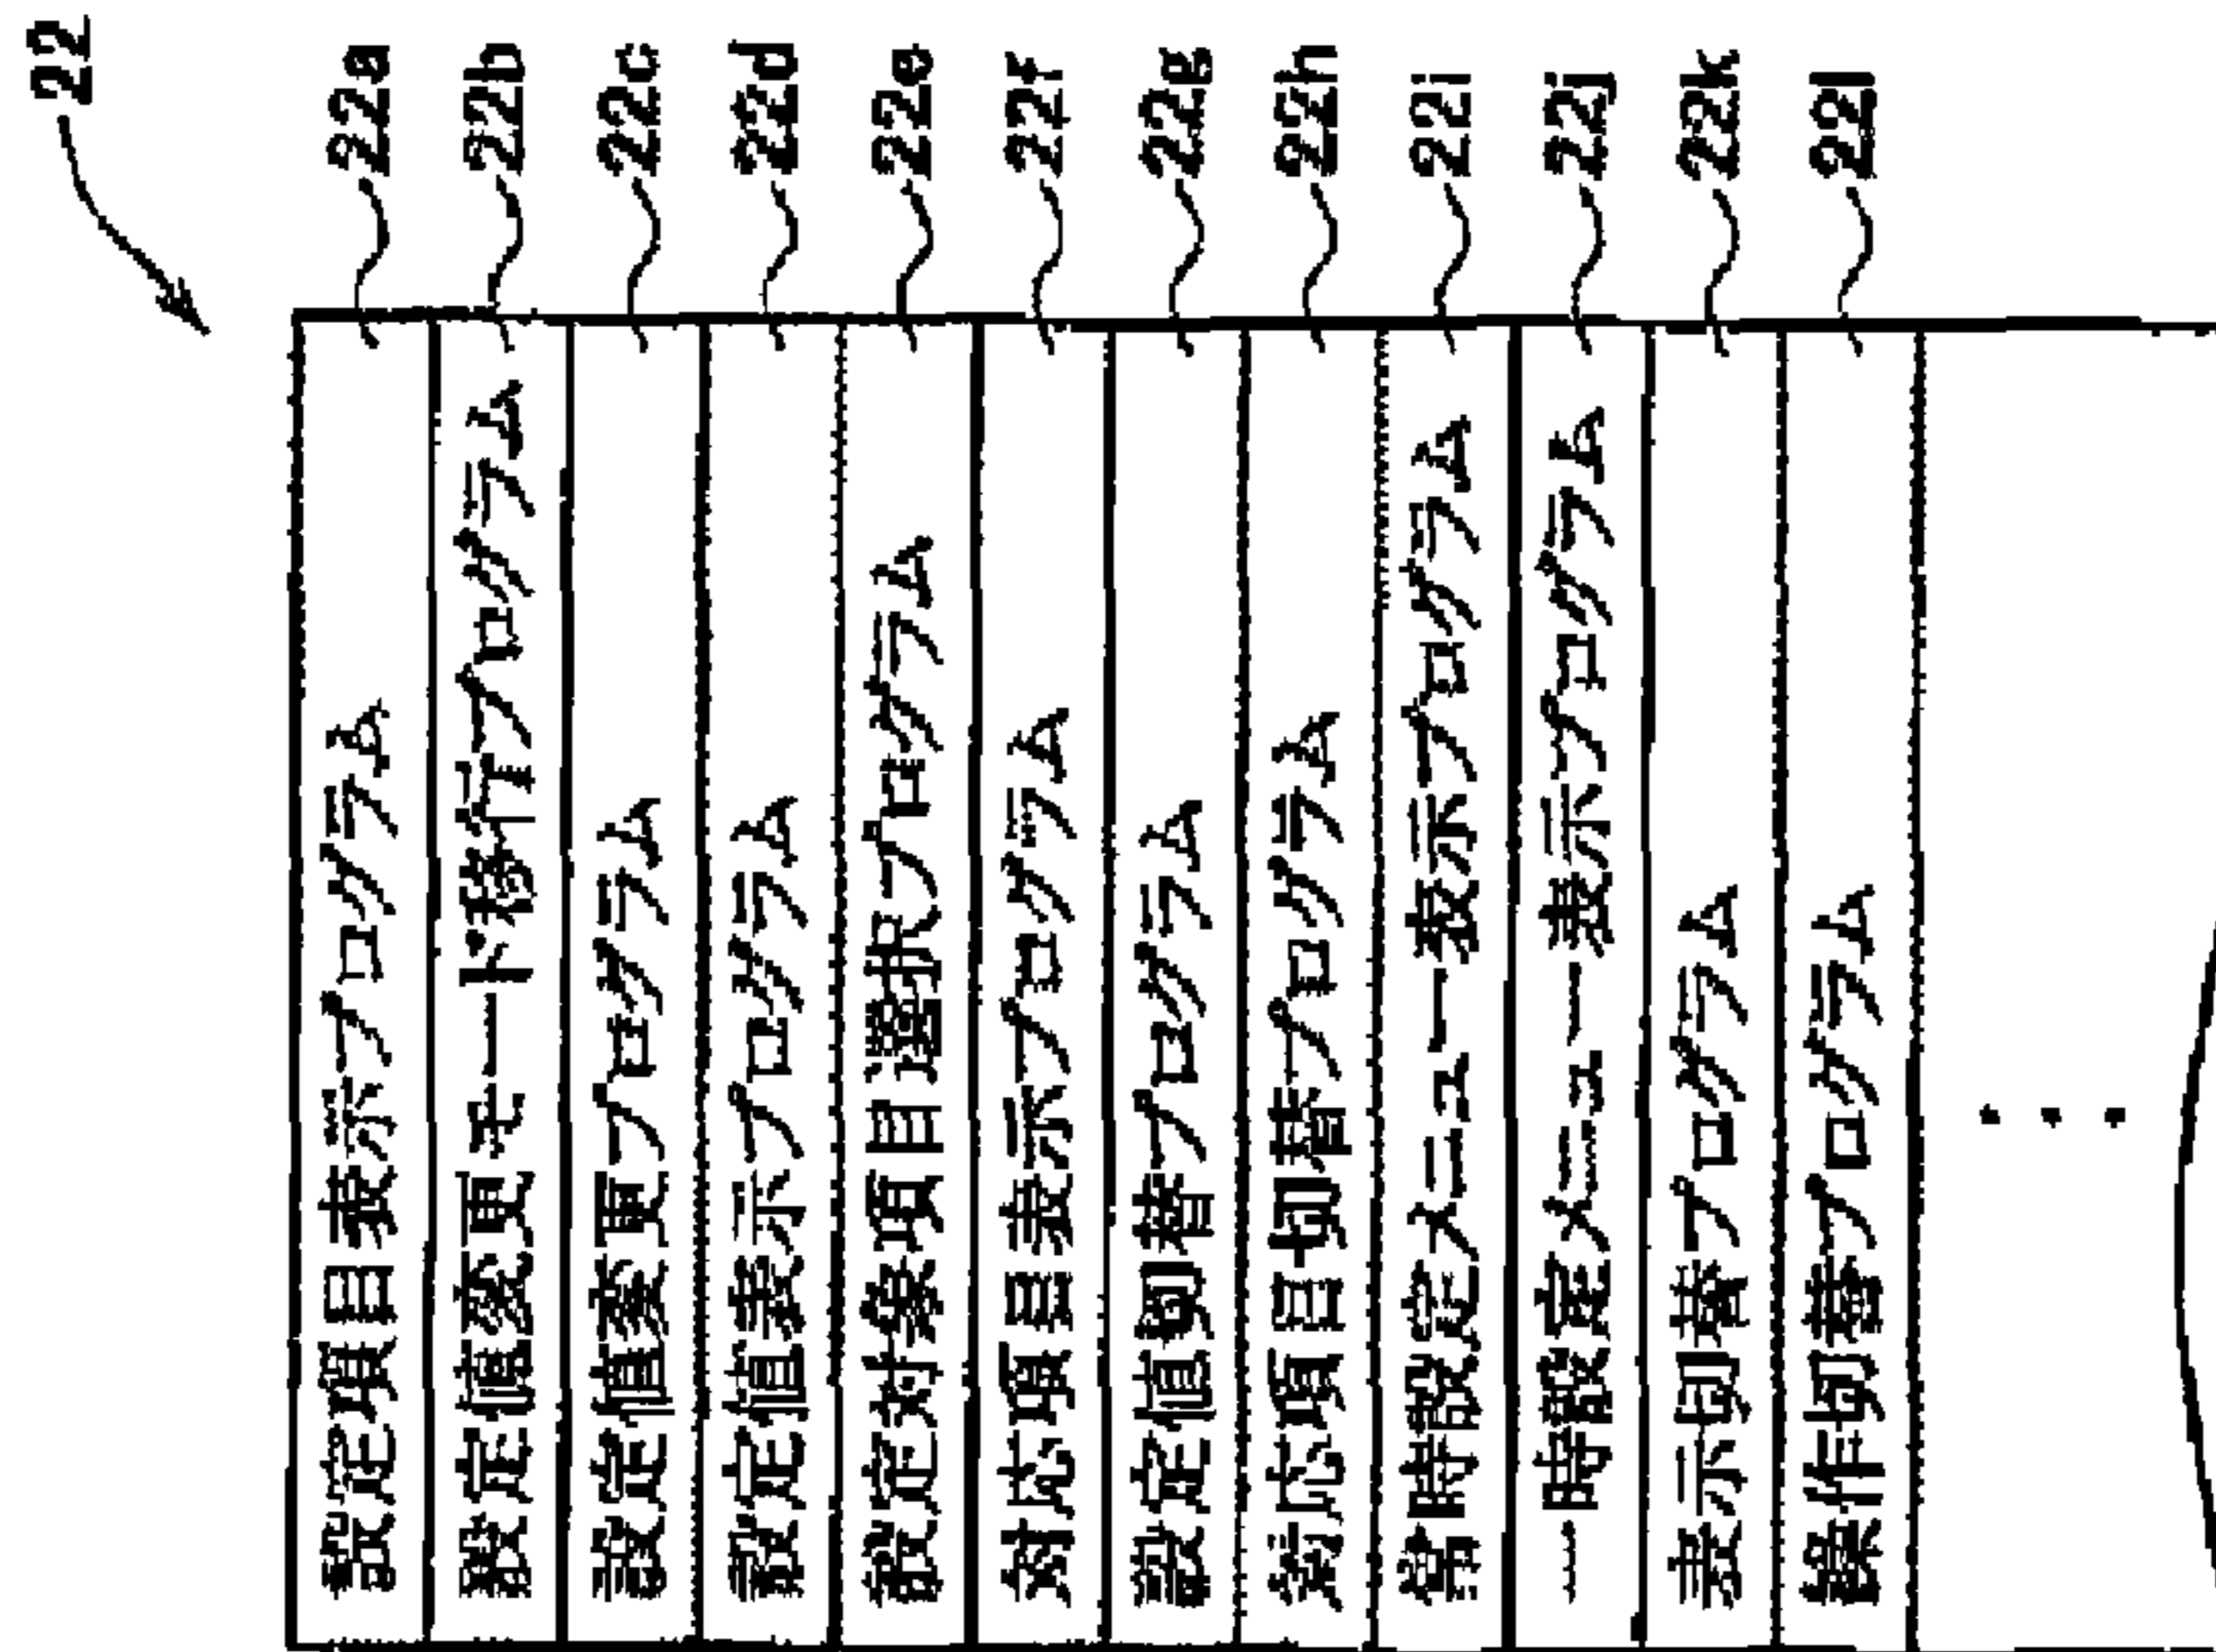 22
設定項目表示プログラム 22a
設定値変更モード移行プログラム 22b
設定値変更プログラム 22c
設定値表示プログラム 22d
設定対象項目選択プログラム 22e
対応項目表示プログラム 22f
設定値切替プログラム 22g
対応項目切替プログラム 22h
常時設定メニュー表示プログラム 22i
一時設定メニュー表示プログラム 22j
表示切替プログラム 22k
操作切替プログラム 22l